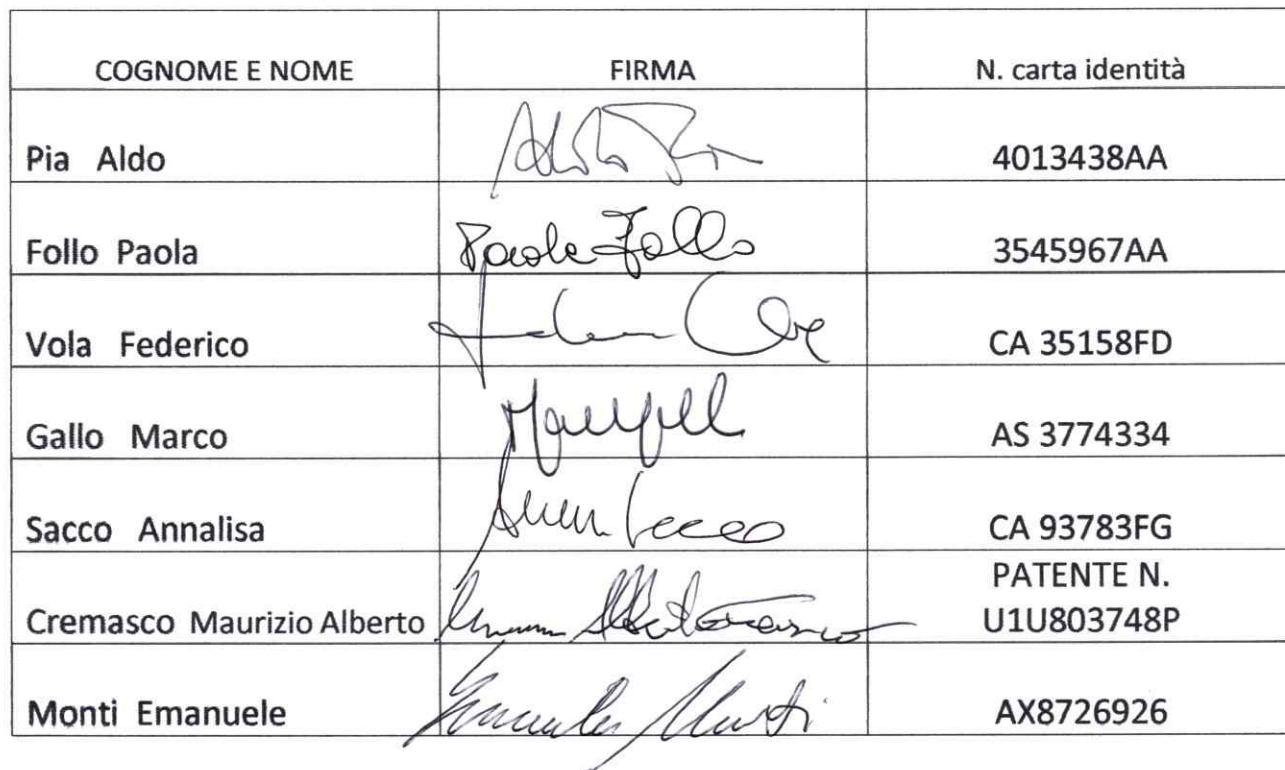 COGNOME E NOME FIRMA N. carta identità
Pia Aldo 4013438AA
Follo Paola Paola Follo 3545967AA
Vola Federico CA 35158FD
Gallo Marco AS 3774334
Sacco Annalisa CA 93783FG
PATENTE N.
Cremasco Maurizio Alberto U1U803748P
Monti Emanuele Emanuele Monti AX8726926